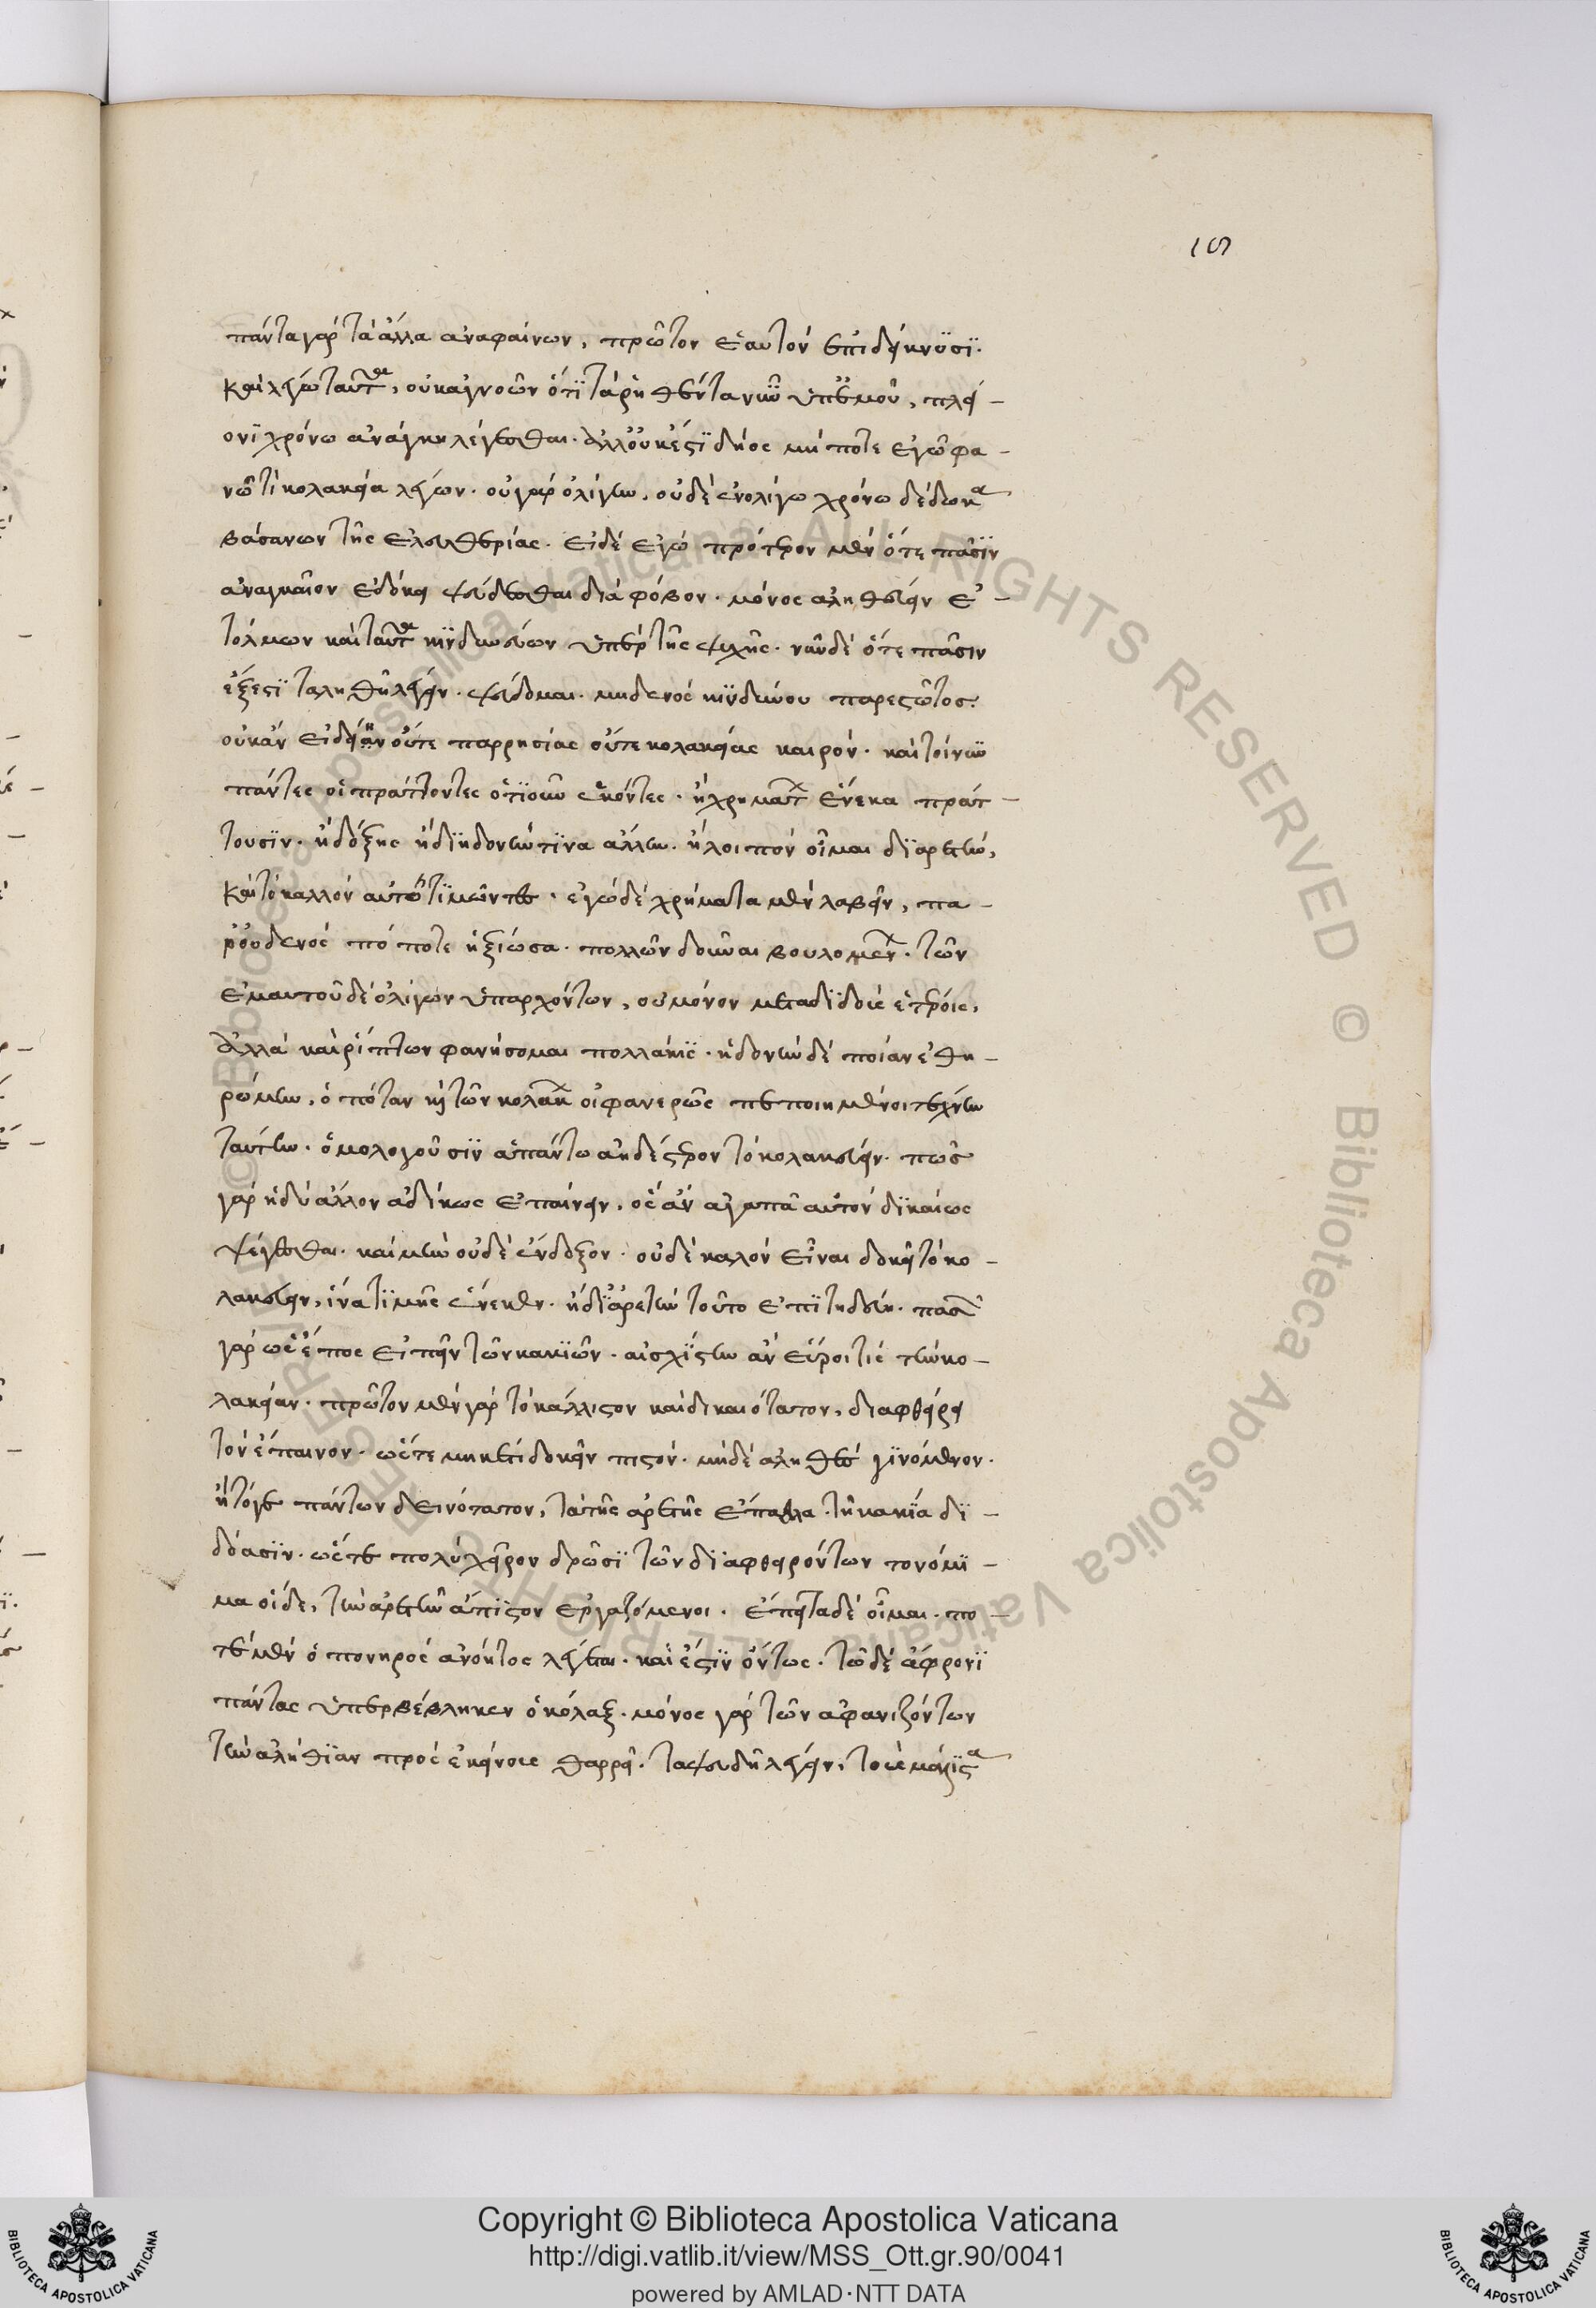 16
πάντα γὰρ τὰ ἄλλα ἀναφαίνων, πρῶτον ἑαυτὸν ἐπιδείκνυσι.
καὶ λέγω ταῦτα, οὐκ ἀγνοῶν ὅτι τὰ ῥηθέντα νῦν ὑπ' ἐμοῦ, πλεί-
ονι χρόνω ἀνάγκη λέγεσθαι. ἀλλ' οὐκ ἔστι δέος μή ποτε ἐγὼ φα-
νῶ τι κολακεία λέγων. οὐ γὰρ ὀλίγην, οὐδὲ ἐν ὀλίγω χρόνω δέδωκα
βάσανον τῆς ἐλευθερίας. εἰ δὲ ἐγὼ πρότερον μὲν ὅτε πᾶσιν
ἀναγκαῖον ἐδόκει ψεύδεσθαι διὰ φόβον. μόνος ἀληθεύειν ἐ-
τόλμων καὶ ταῦτα κινδυνεύων ὑπὲρ τῆς ψυχῆς. νῦν δὲ ὅτε πᾶσιν
ἔξεστι τἀληθῆ λέγειν. ψεύδομαι. μηδενὸς κινδύνου παρεστῶτος.
οὐκ ἂν εἰδείην οὔτε παρρησίας οὔτε κολακείας καιρόν. καὶ τοίνυν
πάντες οἱ πράττοντες ὁτιοῦν ἑκόντες. ἢ χρημάτων ἕνεκα πράτ-
τουσιν. ἢ δόξης ἢ δι' ἡδονήν τινα ἄλλην. ἢ λοιπὸν οἶμαι δι' ἀρετήν,
καὶ τὸ καλὸν αὐτὸ τιμῶντες. ἐγὼ δὲ χρήματα μὲν λαβεῖν, πα-
ρ' οὐδενὸς πώποτε ἠξίωσα. πολλῶν δοῦναι βουλομένων. τῶν
ἐμαυτοῦ δὲ ὀλίγων ὑπαρχόντων, οὐ μόνον μεταδιδοὺς ἑτέροις,
ἀλλὰ καὶ ῥίπτων φανήσομαι πολλάκις. ἡδονὴν δὲ ποίαν ἐθη-
ρώμην, ὁπόταν καὶ τῶν κολάκων οἱ φανερῶς πεποιημένοι τέχνην
ταύτην. ὁμολογοῦσιν ἁπάντων ἀηδέστερον τὸ κολακεύειν. πῶς
γὰρ ἡδὺ ἄλλον ἀδίκως ἐπαινεῖν, ὡς ἂν ἀγαπᾶ αὐτὸν δικαίως
ψέγεσθαι. καὶ μὴν οὐδὲ ἔνδοξον. οὐδὲ καλὸν εἶναι δοκεῖ τὸ κο-
λακεύειν, ἵνα τιμῆς ἕνεκεν. ἢ δι' ἀρετὴν τοῦτο ἐπιτηδεύη. πασῶν
γὰρ ὡς ἔπος εἰπεῖν τῶν κακιῶν. αἰσχίστην ἂν εὕροι τις τὴν κο-
λακείαν. πρῶτον μὲν γὰρ τὸ κάλλιστον καὶ δικαιότατον, διαφθείρει
τὸν ἔπαινον. ὥστε μηκέτι δοκεῖν πιστόν. μηδὲ ἀληθὲς γινόμενον.
ἢ τό γε πάντων δεινότατον, τὰ τῆς ἀρετῆς ἔπαθλα τῆ κακία δι-
δόασιν. ὥστε πολὺ χεῖρον δρῶσι τῶν διαφθειρόντων τὸ νόμι-
μα οἵδε, τὴν ἀρετὴν ἄπιστον ἐργαζόμενοι. ἔπειτα δὲ οἶμαι. πο-
τὲ μὲν ὁ πονηρὸς ἀνόητος λέγεται. καὶ ἔστιν ὄντως. τῶ δὲ ἄφρονι
πάντας ὑπερβέβληκεν ὁ κόλαξ. μόνος γὰρ τῶν ἀφανιζόντων
τὴν ἀλήθειαν πρὸς ἐκείνους θαρρεῖ. τὰ ψευδῆ λέγειν, τοὺς μάλιστα
Copyright © Biblioteca Apostolica Vaticana
http://digi.vatlib.it/view/MSS_Ott.gr.90/0041
powered by AMLAD·NTT DATA